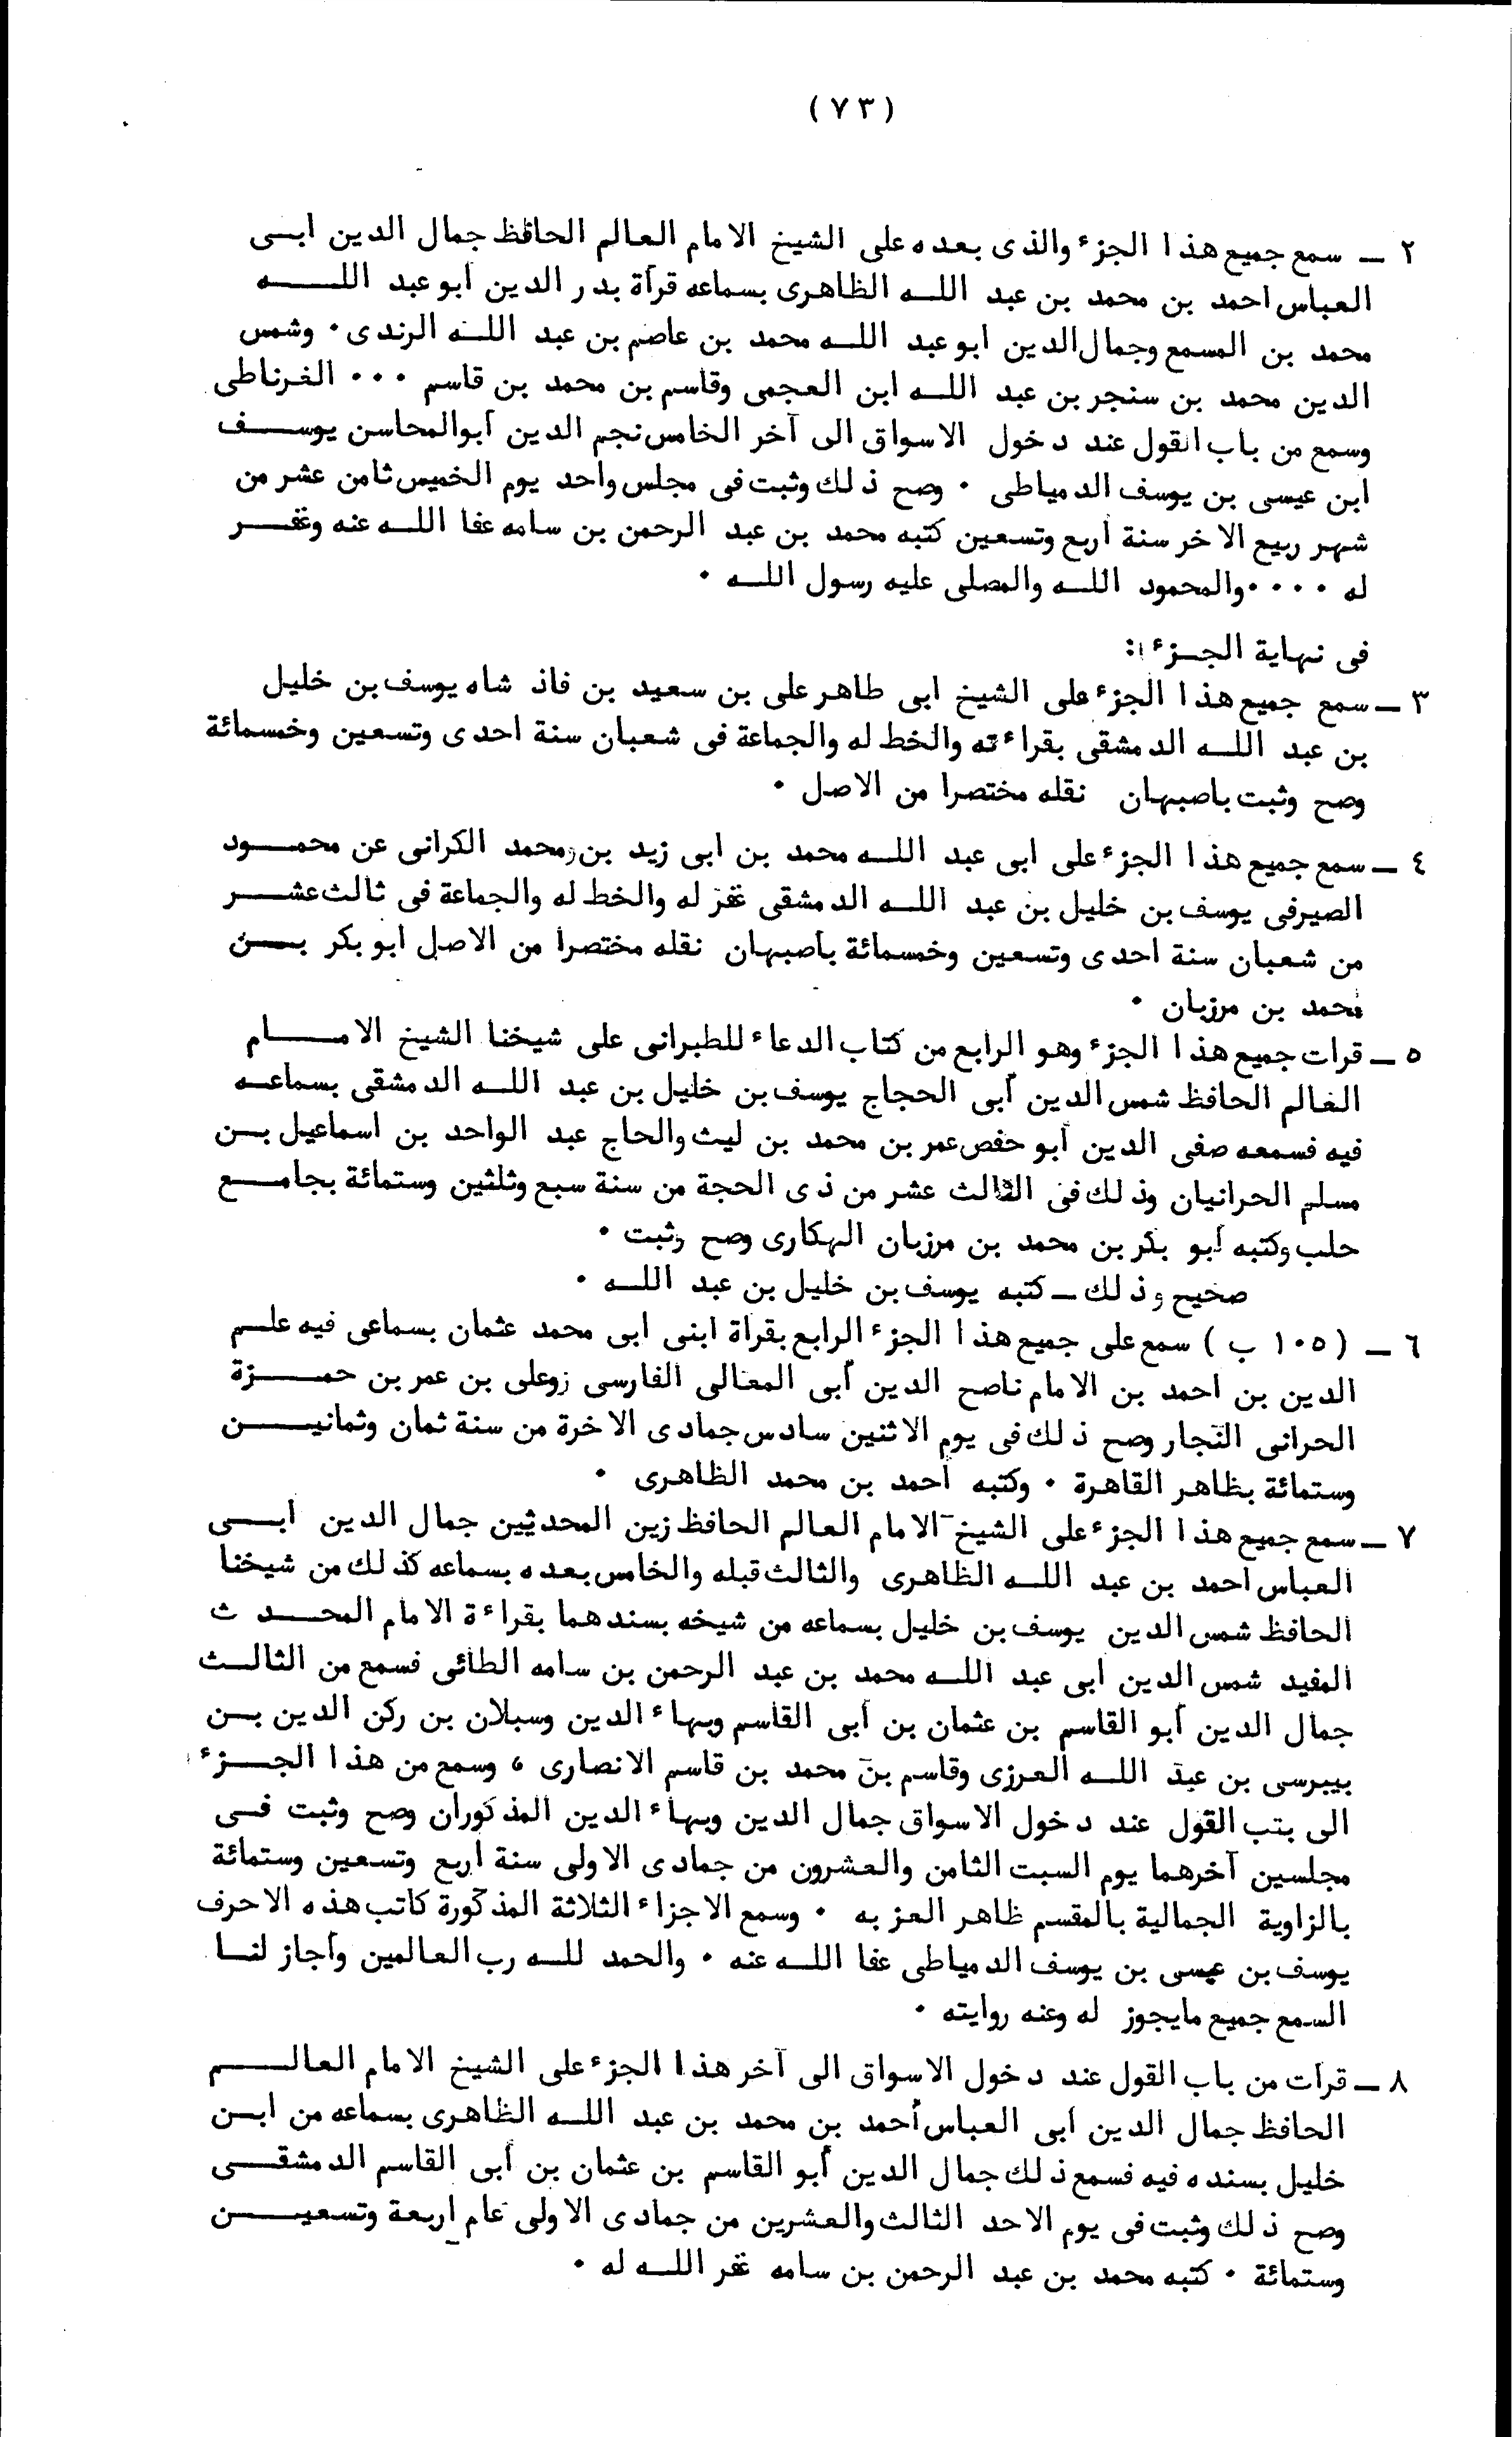 (٧٣)
٢ ـ سمع جميع هذا الجزء والذى بعده على الشيخ الامام العالم الحافظ جمال الدين ابى
العباس احمد بن محمد بن عبد الله الظاهرى بسماعه قرأة بدر الدين أبو عبد الله
محمد بن المسمع وجمال الدين ابو عبد الله محمد بن عاصم بن عبد الله الرندى٠ وشمس
الدين محمد بن سنجر بن عبد الله ابن العجمى وقاسم بن محمد بن قاسم ٠٠٠ الغرناطى
وسمع من باب القول عند دخول الاسواق الى آخر الخامس نجم الدين أبوالمحاسن يوسف
ابن عيسى بن يوسف الدمياطى ٠ وصح ذلك وثبت فى مجلس واحد يوم الخميس ثامن عشر من
شهر ربيع الاخر سنة أربع وتسعين كتبه محمد بن عبد الرحمن بن سامه عفا الله عنه وغفر
له ٠٠٠٠ والمحمود الله والمصلى عليه رسول الله ٠
فى نهاية الجزء :
٣ ـ سمع جميع هذا الجزء على الشيخ ابى طاهر على بن سعيد بن فاذ شاه يوسف بن خليل
بن عبد الله الدمشقى بقراءته والخط له والجماعة فى شعبان سنة احدى وتسعين وخمسمائة
وصح وثبت باصبهان نقله مختصرا من الاصل ٠
٤ ـ سمع جميع هذا الجزء على ابى عبد الله محمد بن ابى زيد بن محمد الكرانى عن محمود
الصيرفى يوسف بن خليل بن عبد الله الدمشقى غفر له والخط له والجماعة فى ثالث عشر
من شعبان سنة احدى وتسعين وخمسمائة باصبهان نقله مختصرا من الاصل ابو بكر بن
محمد بن مرزبان ٠
٥ ـ قرات جميع هذا الجزء وهو الرابع من كتاب الدعاء للطبرانى على شيخنا الشيخ الامام
العالم الحافظ شمس الدين أبى الحجاج يوسف بن خليل بن عبد الله الدمشقى بسماعه
فيه فسمعه صفى الدين أبو حفص عمر بن محمد بن ليث والحاج عبد الواحد بن اسماعيل بن
مسلم الحرانيان وذلك فى الثالث عشر من ذى الحجة من سنة سبع وثلثين وستمائة بجامع
حلب وكتبه أبو بكر بن محمد بن مرزبان الهكارى وصح وثبت ٠
صحيح وذلك ـ كتبه يوسف بن خليل بن عبد الله ٠
٦ ـ (١٠٥ ب) سمع على جميع هذا الجزء الرابع بقرأة ابنى ابى محمد عثمان بسماعى فيه علم
الدين بن احمد بن الامام ناصح الدين أبى المعالى الفارسى زوعلى بن عمر بن حمزة
الحرانى النجار وصح ذلك فى يوم الاثنين سادس جمادى الاخرة من سنة ثمان وثمانين
وستمائة بظاهر القاهرة ٠ وكتبه أحمد بن محمد الظاهرى ٠
٧ ـ سمع جميع هذا الجزء على الشيخ الامام العالم الحافظ زين المحدثين جمال الدين ابى
العباس احمد بن عبد الله الظاهرى والثالث قبله والخامس بعده بسماعه كذلك من شيخنا
الحافظ شمس الدين يوسف بن خليل بسماعه من شيخه بسندهما بقراءة الامام المحدث
المفيد شمس الدين ابى عبد الله محمد بن عبد الرحمن بن سامه الطائى فسمع من الثالث
جمال الدين أبو القاسم بن عثمان بن أبى القاسم وبهاء الدين وسبلان بن ركن الدين بن
بيبرسى بن عبد الله العرزى وقاسم بن محمد بن قاسم الانصارى ، وسمع من هذا الجزء
الى بتب القول عند دخول الاسواق جمال الدين وبهاء الدين المذكوران وصح وثبت فى
مجلسين آخرهما يوم السبت الثامن والعشرون من جمادى الاولى سنة أربع وتسعين وستمائة
بالزاوية الجمالية بالمقسم ظاهر العز به ٠ وسمع الاجزاء الثلاثة المذكورة كاتب هذه الاحرف
يوسف بن عيسى بن يوسف الدمياطى عفا الله عنه ٠ والحمد لله رب العالمين وأجاز لنا
السمع جميع مايجوز له وعنه روايته ٠
٨ ـ قرأت من باب القول عند دخول الاسواق الى آخر هذا الجزء على الشيخ الامام العالم
الحافظ جمال الدين أبى العباس أحمد بن محمد بن عبد الله الظاهرى بسماعه من ابن
خليل بسنده فيه فسمع ذلك جمال الدين أبو القاسم بن عثمان بن أبى القاسم الدمشقى
وصح ذلك وثبت فى يوم الاحد الثالث والعشرين من جمادى الاولى عام اربعة وتسعين
وستمائة ٠ كتبه محمد بن عبد الرحمن بن سامه غفر الله له ٠